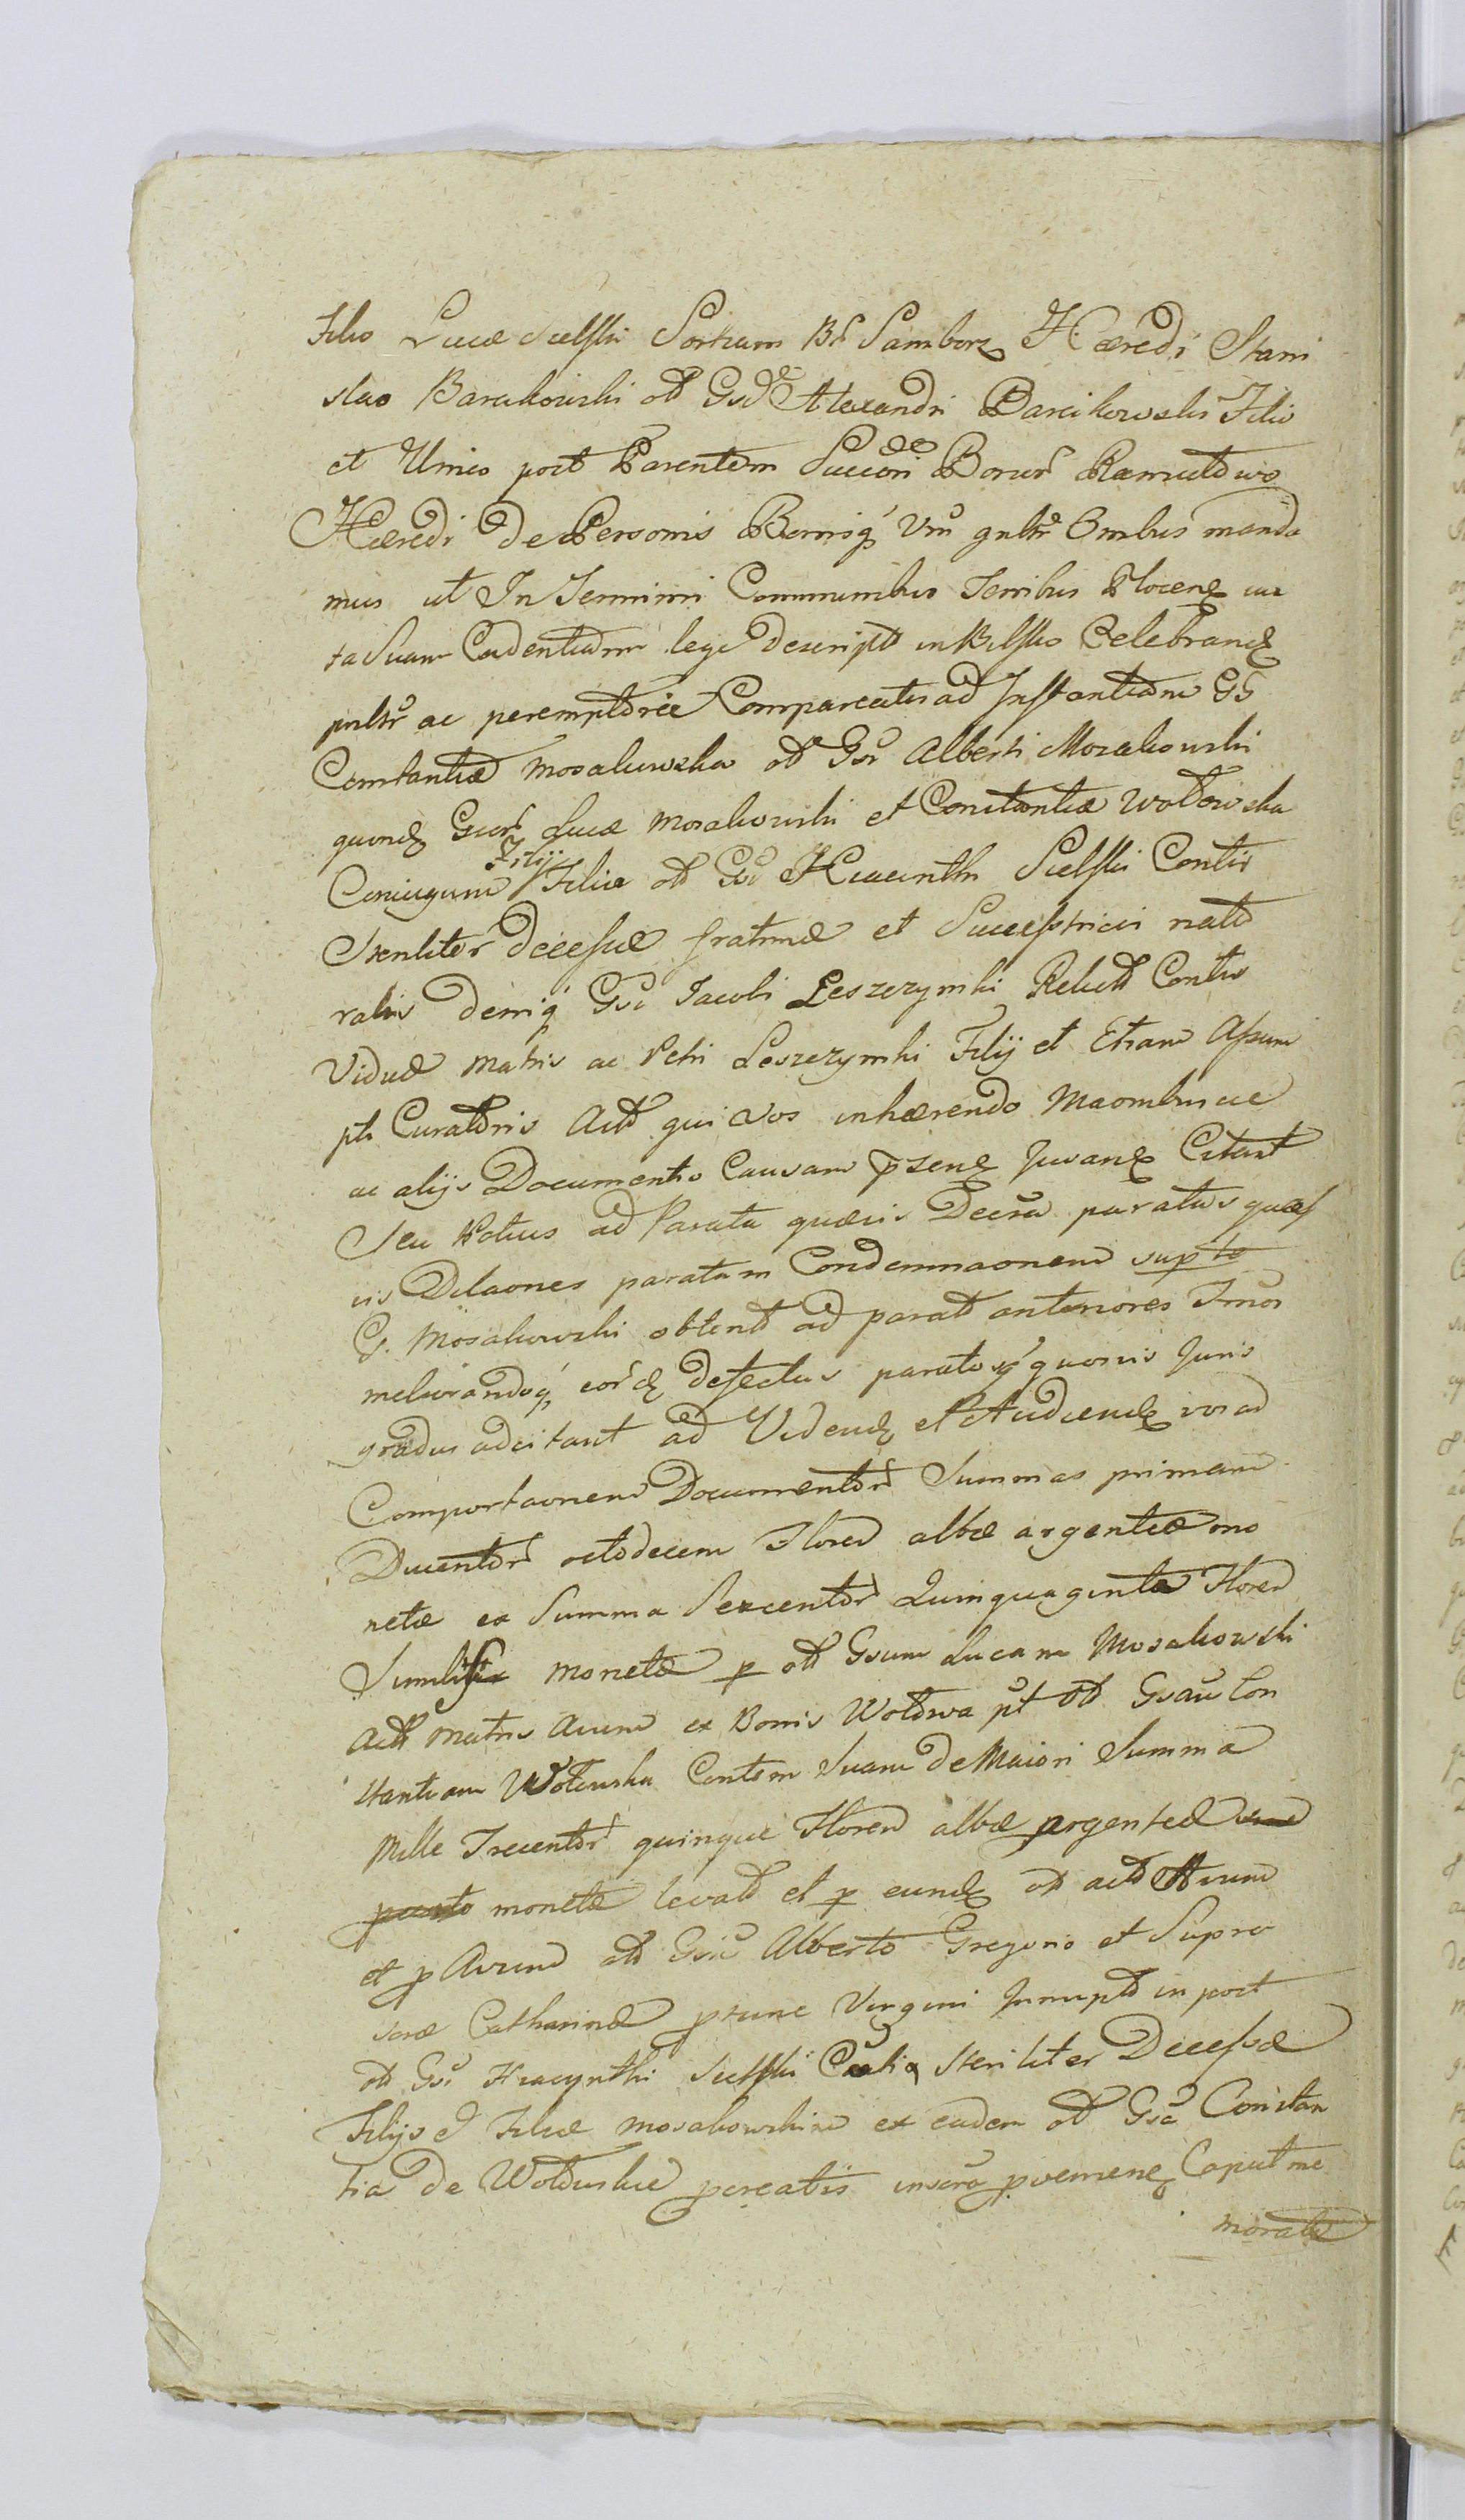 Filio Lucæ Sielski Sortium Br Samborz Hæredi Stani
slao Barcikowski ol Gsd Alexandri Barcikowski Filio
et Unico post Parentem Succori Bonor Ramutowo
Hæredi De Personis Bonisq Vris gnltr Omibus manda
mus ut In Terminis Communibus Terribus Plocen iux
ta Suam Cadentiam lege descript in Bielsko Celebrand
pnltr ac peremptorie Compareatis ad Instantiam GG
Constantiæ Mosakowska ol Gsi Alberti Mosakowski
quond Gsor Lucæ Mosakowski et Constantiæ Wołowska
Coniugum Filij Filiæ ol Gsi Hiacinthi Sielski Contis
Steriliter decessæ fratrinæ et Successtricis natu
ralis deniq Gsi Jacobi Leszczynski Relict Contis
Viduæ Matris ac Petri Leszczynski Filij et Etiam Assum
pti Curatoris Act qui Vos inhærendo
ac alijs Documentis Causam pzend Juvand Citant
Seu Potius ad Parata quævis Decra paratas quas
vis Dilaones paratam Condemnaonem sup to
G. Mosakowski obtent ad parat anteriores Tmos
meliorandoq eord defectus paratosq quosvis Juris
gradus adcitant ad Vidend et Audiend vos ad
Comportaonem Documentor Summas primam
Ducentor octodecem Floren albæ argenteæ mo
netæ ex Summa Sexcentor Quinquaginta Floren
Similis monetæ p ol Gsum Lucam Mosakowski
Act Matris Avum ex Bonis Wołowa pt ol Gsam Con
stantiam Wołowska Contem Suam de Maiori Summa
Mille Trecentor quinque Floren albæ argenteæ
monetæ levat et p eund ol act Avum
et p Avum ol Gsis Alberto Gregorio et Supra
Catharinæ ptunc Virgini Innupt in post
ol Gsi Hiacynthi Sielski steriliter Decessæ
Filijs et Filiæ Mosakowskim ex eadem ol Gsa Constan
tia de Wołowskie pcreatis
morate